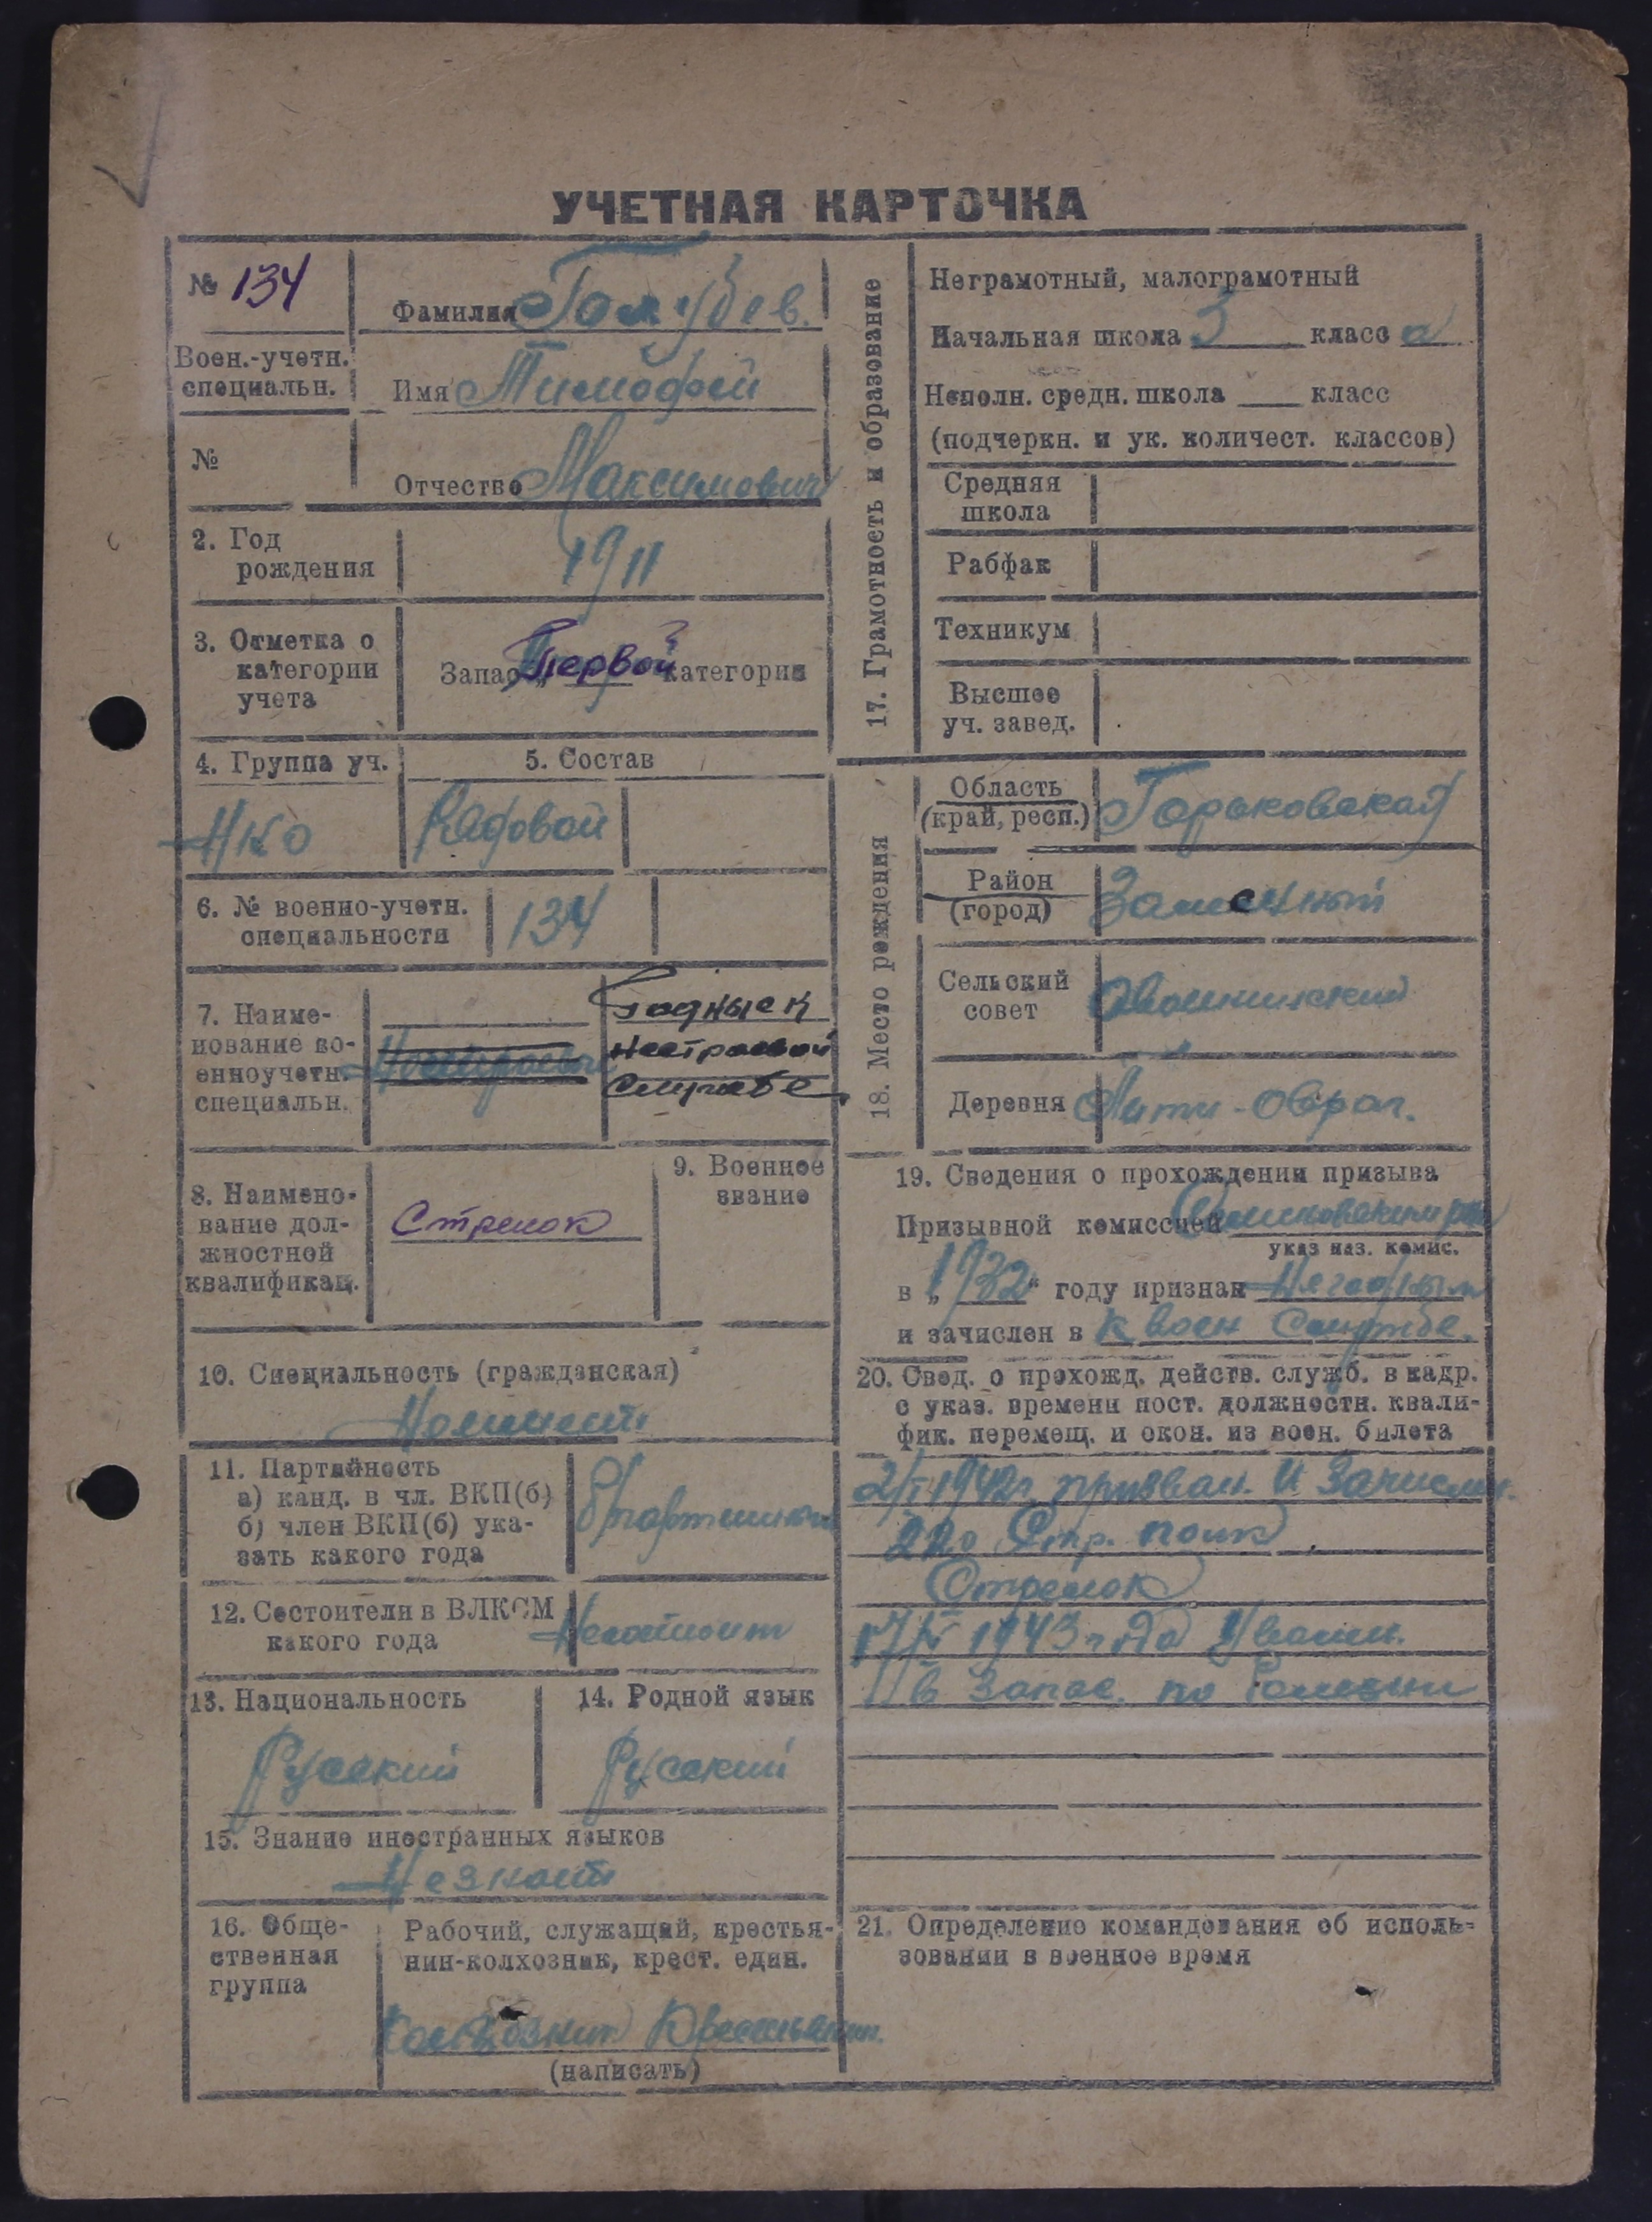 УЧЕТНАЯ КАРТОЧКА
№ 134
Воен.-учетн.
специальн.
№
Фамилия Голубев.
Имя Тимофей
Отчество Максимович
2. Год
рождения
1911
3. Отметка о
категории
учета
Запас „Первой категории
4. Группа уч.
НКО
5. Состав
Рядовой
6. № военно-учетн.
специальности
134
7. Наиме-
нование во-
енноучетн.
специальн.
Годные к
нестроевой
службе
8. Наимено-
вание дол-
жностной
квалификац.
Стрелок
9. Военное
звание
10. Специальность (гражданская)
11. Партийность
а) канд. в чл. ВКП(б)
б) член ВКП(б) ука-
зать какого года
б/партийный
12. Состоители в ВЛКСМ
какого года
Несостоит
13. Национальность
Русский
14. Родной язык
Русский
15. Знание иностранных языков
Незнает
16. Обще-
ственная
группа
Рабочий, служащий, крестья-
нин-колхозник, крест. един.
Колхозник Крестьянин.
(написать)
17. Грамотность и образование
Неграмотный, малограмотный
Начальная школа 3 класс а
Неполн. средн. школа ___ класс
(подчеркн. и ук. количест. классов)
Средняя
школа
Рабфак
Техникум
Высшее
уч. завед.
18. Место рождения
Область
(край, респ.)
Горьковская
Район
(город)
Сельский
совет
Деревня
Овраг.
19. Сведения о прохождении призыва
Призывной комиссией
указ наз. комис.
в „1932“ году признан Негодным
и зачислен в к воен Службе.
20. Свед. о прохожд. действ. служб. в кадр.
с указ. времени пост. должностн. квали-
фик. перемещ. и окон. из воен. билета
1942г. призван. и Зачислен.
220 Стр. полк
Стрелок
17/IV 1943 года Уволен.
в Запас. по Болезни
21. Определение командования об исполь-
зовании в военное время